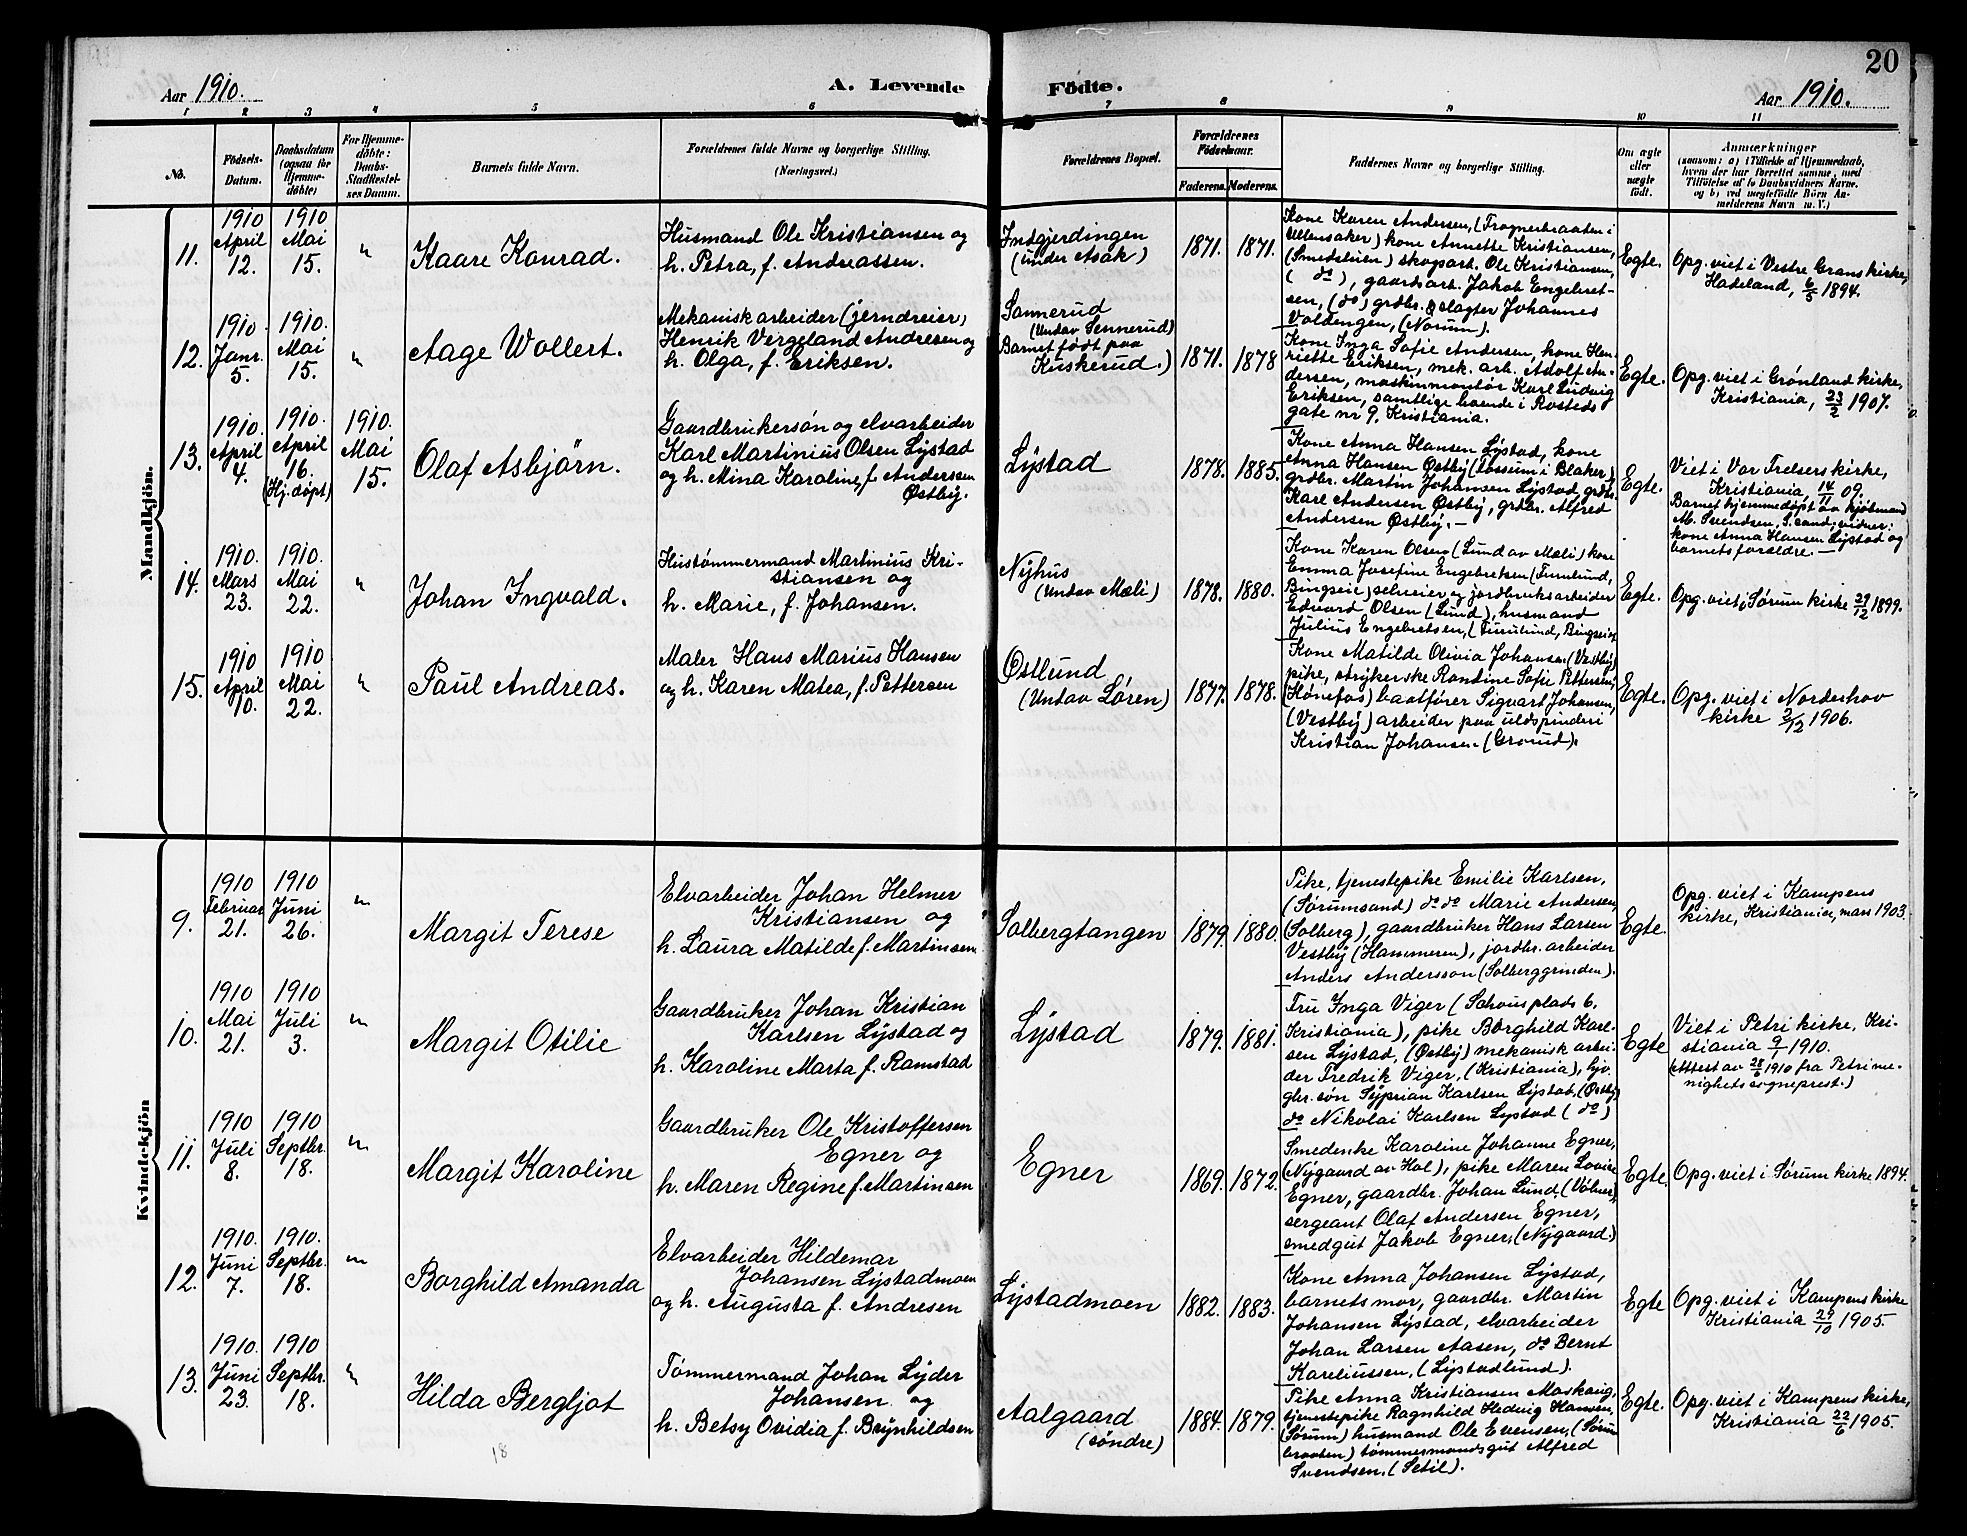 20
Aar 1910.
A. Levende
Födte.
Aar 1910.
1 2 3 4 5 6 7 8 9 10 11
No.
Födsels-
Datum.
Daabsdatum
(ogsaa for
Hjemme-
döbte)
For Hjemme-
döbte:
Daabs-
Stadfæstel-
ses Datum.
Barnets fulde Navn.
Forældrenes fulde Navne og borgerlige Stilling.
(Næringsvei.)
Forældrenes Bopæl.
Forældrenes
Födselsaar.
Faderens.
Moderens.
Faddernes Navne og borgerlige Stilling.
Om ægte
eller
uægte
födt.
Anmærkninger
(saasom: a) i Tilfælde af Hjemmedaab,
hvem der har forrettet samme, med
Tilföielse af to Daabsvidners Navne,
og b) ved uægtefödte Börn An-
melderens Navn m. V.)
Mandkjön.
11.
1910
April
12.
1910
Mai
15.
"
Kaare Konrad.
Husmand Ole Kristiansen og
h. Petra, f. Andreassen.
Indgjerdingen
(under Asak)
1871.
1871.
Kone Karen Andersen, (Frognerbraaten i
Ullensaker) kone Annette Kristiansen,
(Smedsleien) skogsarb. Ole Kristiansen,
( do ), gaardsarb. Jakob Engebret-
sen, (do) grdbr. & slagter Johannes
Voldengen, (Norum).
Egte.
Opg. viet i Vestre Grans kirke,
Hadeland, 6/5 1894.
12.
1910.
Janr.
5.
1910.
Mai
15.
"
Aage Wollert.
Mekanisk arbeider (jerndreier)
Henrik Vergeland Andresen og
h. Olga, f. Eriksen.
Sannerud
(Undav Sennerud)
Barnet født paa
Kuskerud.)
1871.
1878
Kone Inga Sofie Andersen, kone Hen-
riette Eriksen, mek. arb. Adolf An-
dersen, maskinmontør Karl Ludvig
Eriksen, samtlige boende i Rosteds
gate nr 9, Kristiania.
Egte.
Opg. viet i Grønland kirke,
Kristiania, 23/2 1907.
13.
1910.
April
4.
1910.
April
16.
(Hj. døpt)
1910.
Mai
15.
Olaf Asbjörn.
Gaardbrukersøn og elvarbeider
Karl Martinius Olsen Lystad
og h. Mina Karoline, f. Anderssen
Østby.
Lystad
1878.
1885.
Kone Anna Hansen Lystad, kone
Anna Hansen Østby (Fossum i Blaker)
grdbr. Martin Johansen Lystad, grdbr.
Karl Andersen Østby, grdbr. Alfred
Andersen Østby. -
Egte.
Viet i Vor Frelsers kirke,
Kristiania, 14/11 09.
Barnet hjemmedøpt av kjøbmand
M. Svendsen, S. sand; vidner:
kone Anna Hansen Lystad og
barnets forældre. -
14.
1910.
Mars
23.
1910.
Mai
22.
"
Johan Ingvald.
Hustømmermand Martinius Kri-
stiansen og
h. Marie, f. Johansen.
Nyhus
(Undav Mæli)
1878.
1880.
Kone Karen Olsen (Lund av Mæli) kone
Emma Josefine Engebretsen (Furulund,
Bingseie) selveier og jordbruksarbeider
Edvard Olsen (Lund), husmand
Julius Engebretsen, (Furulund, Bingseie)
Egte.
Opg. viet i Sørum kirke 29/12 1899.
15.
1910
April
10.
1910
Mai
22.
"
Paul Andreas.
Maler Hans Marius Hansen
og h. Karen Matea, f. Pettersen
Østlund
(Undav Løren)
1877.
1878.
Kone Matilde Olivia Johansen (Vestby)
pike, strykerske Randine Sofie Pettersen,
(Hønefos) baatfører Sigvart Johansen,
(Vestby) arbeider paa uldspinderi
Kristian Johansen. (Grorud).
Egte.
Opg. viet i Norderhov
kirke 2/12 1906.
Kvindekjön
9.
1910
Februar
21.
1910
Juni
26.
"
Margit Terese
Elvarbeider Johan Helmer
Kristiansen og
h. Laura Matilde f. Martinsen
Solbergtangen
1879.
1880.
Pike, tjenestepike Emilie Karlsen,
(Sørumsand) do do Marie Andersen,
(Solberg), gaardbruker Hans Larsen
Vestby (Hammeren), jordbr. arbeider
Anders Andersson (Solberggrinden).
Egte.
Opg. viet i Kampens
kirke, Kristiania, mars 1903.
10.
1910
Mai
21.
1910
Juli
3.
"
Margit Otilie
Gaardbruker Johan Kristian
Karlsen Lystad og
h. Karoline Marta f. Ramstad
Lystad
1879.
1881.
Fru Inga Viger (Schousplads 6,
Kristiania), pike Borghild Karl-
sen Lystad, (Østby) mekanisk arbei-
der Fredrik Viger, (Kristiania),
gbr. søn Syprian Karlsen Lystad, (Østby)
do Nikolai Karlsen Lystad (do)
Egte
Viet i Petri kirke, Kri-
stiania 9/1 1910.
(Attest av 28/6 1910 fra Petri me-
nighets sogneprest.)
11.
1910
Juli
8.
1910
Septbr.
18.
"
Margit Karoline
Gaardbruker Ole Kristoffersen
Egner og
h. Maren Regine f. Martinsen
Egner
1869.
1872.
Smedenke Karoline Johanne Egner,
(Nygaard av Hol), pike Maren Lovise
Egner, gaardbr. Johan Lund, (Vølner),
sergeant Olaf Andersen Egner,
smedgut Jakob Egner, (Nygaard)
Egte.
Opg. viet i Sørum kirke 1894.
12.
1910.
Juni
7.
1910.
Septbr.
18.
"
Borghild Amanda
Elvarbeider Hildemar
Johansen Lystadmoen
og h. Augusta f. Andresen
Lystadmoen
1882.
1883.
Kone Anna Johansen Lystad,
barnets mor, gaardbr. Martin
Johansen Lystad, elvarbeider
Johan Larsen Aasen, do Bernt
Kareliussen, (Lystadlund).
Egte
Opg. viet i Kampens kirke
Kristiania 29/10 1905.
13.
1910.
Juni
23.
1910
Septbr.
18.
"
Hilda Bergljot
Tømmermand Johan Lyder
Johansen og
h. Betsy Ovidia f. Brynhildsen
Aalgaard
(søndre)
1884.
1879.
Pike Anna Kristiansen Moskaug,
tjenestepike Ragnhild Hedvig Hansen,
(Sørum) husmand Ole Evensen, (Sørum
braaten) tømmermandsgut Alfred
Svendsen, (Setil).
Egte.
Opg. viet i Kampens kirke,
Kristiania 22/6 1905.
18